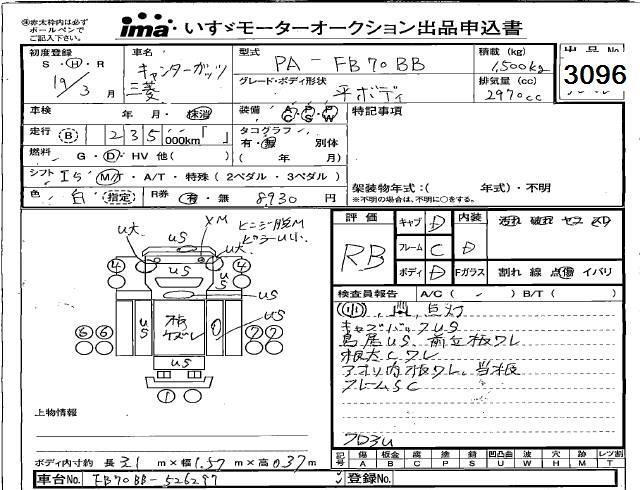 ※赤太枠内は必ず
ボールペンで
ご記入下さい。
ima いすゞモーターオークション出品申込書
初度登録
S・H・R
19/3 月
車名
キャンターガッツ
三菱
型式
PA-FB70BB
グレード・ボディ形状
平ボディ
積載 (kg)
1,500kg
排気量 (cc)
2970cc
出品No.
3096
車検 年・月・抹消
装備
特記事項
走行 B 235 000km
タコグラフ
有・無 別体
( 年 月)
燃料 G・D・HV 他( )
シフト I 5 M/T・A/T・特殊(2ペダル・3ペダル)
色 白 指定 R券 有・無 8930 円
架装物年式:( 年式)・不明
※不明の場合は、不明に○をする。
XM
U大
US
4 4
US
U大
US
US
US
US
板
ケズレ
US
6 6
7 7
US
1
上物情報
ボディ内寸約 長 3.1 m×幅 1.57 m×高 0.37 m
車台No. FB70BB-526297
評価
RB
キャブ D 内装
フレーム C D
ボディ D Fガラス
汚れ 破れ
割れ 線 点傷 イバリ
検査員報告 A/C( ) B/T( )
小 点灯
キャブバックUS
鳥居US、前立板ワレ
板大Cワレ
アオリ内板ワレ、当板
フレームSC
フロ3U
記号 傷 板金 腐 塗 錆 凹凸曲 波 穴 跡 レンズ割
A B C P S U W H M T
登録No.